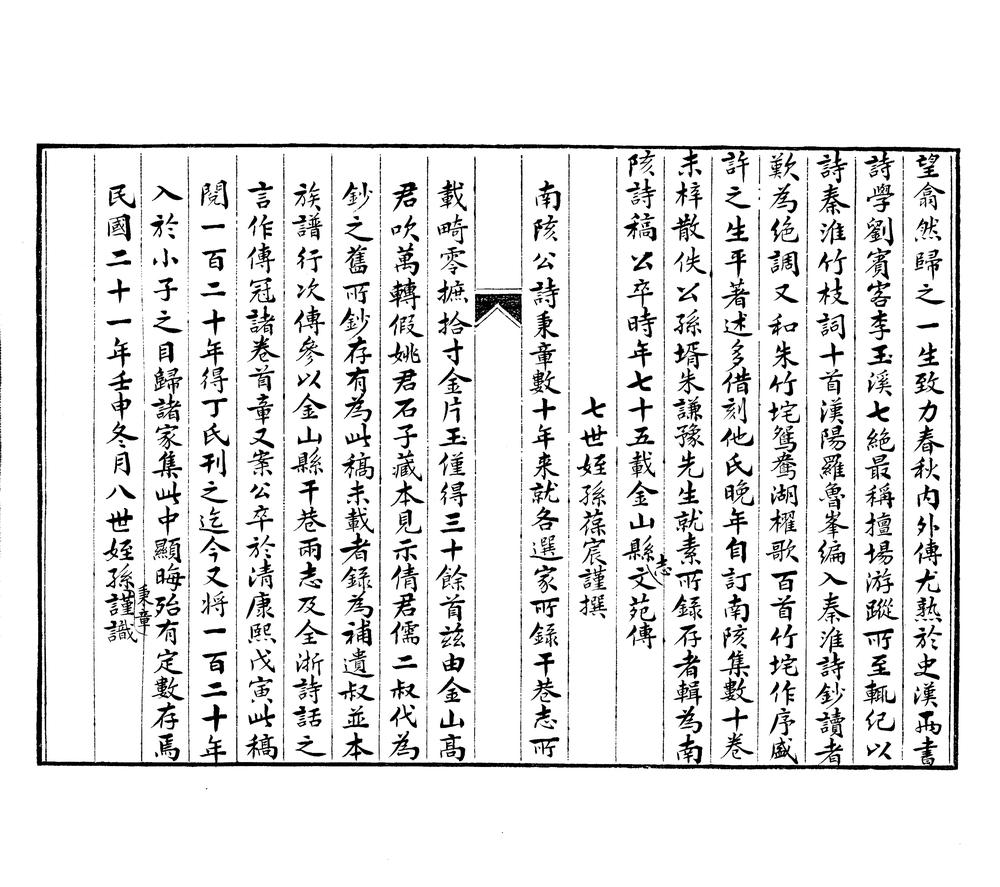 望翕然歸之一生致力春秋內外傳尤熟於史漢兩書
詩學劉賓客李玉溪七絕最稱擅場游蹤所至輒紀以
詩秦淮竹枝詞十首漢陽羅魯峯編入秦淮詩鈔讀者
歎為絕調又和朱竹垞鴛鴦湖櫂歌百首竹垞作序盛
許之生平著述多借刻他氏晚年自訂南陔集數十卷
未梓散佚公孫壻朱謙豫先生就素所錄存者輯為南
陔詩稿公卒時年七十五載金山縣志文苑傳
七世姪孫葆宸謹撰
南陔公詩秉章數十年來就各選家所錄干巷志所
載畸零摭拾寸金片玉僅得三十餘首茲由金山高
君吹萬轉假姚君石子藏本見示倩君儒二叔代為
鈔之舊所鈔存有為此稿未載者錄為補遺叔並本
族譜行次傳參以金山縣干巷兩志及全浙詩話之
言作傳冠諸卷首章又案公卒於清康熙戊寅此稿
閱一百二十年得丁氏刊之迄今又將一百二十年
入於小子之目歸諸家集此中顯晦殆有定數存焉
民國二十一年壬申冬月八世姪孫秉章謹識